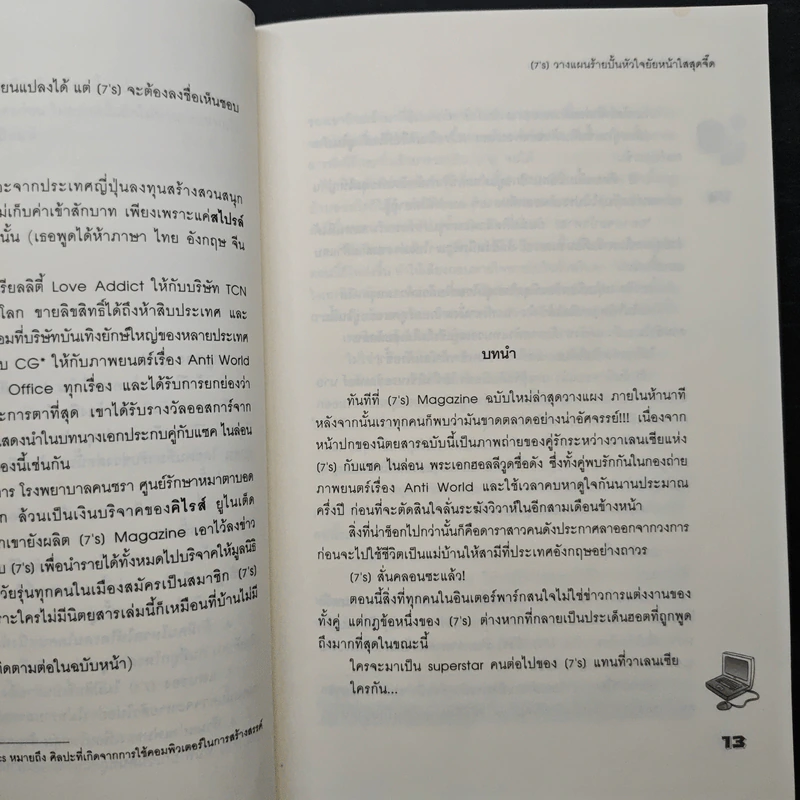 ยนแปลงได้ แต่ (7's) จะต้องลงชื่อเห็นชอบ
ะจากประเทศญี่ปุ่นลงทุนสร้างสวนสนุก
ม่เก็บค่าเข้าสักบาท เพียงเพราะแค่สไปรส์
นั้น (เธอพูดได้ห้าภาษา ไทย อังกฤษ จีน
รียลลิตี้ Love Addict ให้กับบริษัท TCN
โลก ขายลิขสิทธิ์ได้ถึงห้าสิบประเทศ และ
อมที่บริษัทบันเทิงยักษ์ใหญ่ของหลายประเทศ
บ CG* ให้กับภาพยนตร์เรื่อง Anti World
Office ทุกเรื่อง และได้รับการยกย่องว่า
ะการตาที่สุด เขาได้รับรางวัลออสการ์จาก
แสดงนำในบทนางเอกประกบคู่กับแซค ไนล่อน
องนี้เช่นกัน
การ โรงพยาบาลคนชรา ศูนย์รักษาหมาตาบอด
ก ล้วนเป็นเงินบริจาคของคิไรส์ ยูไนเต็ด
กเขายังผลิต (7's) Magazine เอาไว้ลงข่าว
บ (7's) เพื่อนำรายได้ทั้งหมดไปบริจาคให้มูลนิธิ
วัยรุ่นทุกคนในเมืองสมัครเป็นสมาชิก (7's)
ราะใครไม่มีนิตยสารเล่มนี้ก็เหมือนที่บ้านไม่มี
ติดตามต่อในฉบับหน้า)
cs หมายถึง ศิลปะที่เกิดจากการใช้คอมพิวเตอร์ในการสร้างสรรค์
(7's) วางแผนร้ายปั้นหัวใจยัยหน้าใสสุดจี๊ด
บทนำ
ทันทีที่ (7's) Magazine ฉบับใหม่ล่าสุดวางแผง ภายในห้านาที
หลังจากนั้นเราทุกคนก็พบว่ามันขาดตลาดอย่างน่าอัศจรรย์!!! เนื่องจาก
หน้าปกของนิตยสารฉบับนี้เป็นภาพถ่ายของคู่รักระหว่างวาเลนเซียแห่ง
(7's) กับแซค ไนล่อน พระเอกฮอลลีวูดชื่อดัง ซึ่งทั้งคู่พบรักกันในกองถ่าย
ภาพยนตร์เรื่อง Anti World และใช้เวลาคบหาดูใจกันนานประมาณ
ครึ่งปี ก่อนที่จะตัดสินใจลั่นระฆังวิวาห์ในอีกสามเดือนข้างหน้า
สิ่งที่น่าช็อกไปกว่านั้นก็คือดาราสาวคนดังประกาศลาออกจากวงการ
ก่อนจะไปใช้ชีวิตเป็นแม่บ้านให้สามีที่ประเทศอังกฤษอย่างถาวร
(7's) สั่นคลอนซะแล้ว!
ตอนนี้สิ่งที่ทุกคนในอินเตอร์พาร์กสนใจไม่ใช่ข่าวการแต่งงานของ
ทั้งคู่ แต่กฎข้อหนึ่งของ (7's) ต่างหากที่กลายเป็นประเด็นฮอตที่ถูกพูด
ถึงมากที่สุดในขณะนี้
ใครจะมาเป็น superstar คนต่อไปของ (7's) แทนที่วาเลนเซีย
ใครกัน...
13